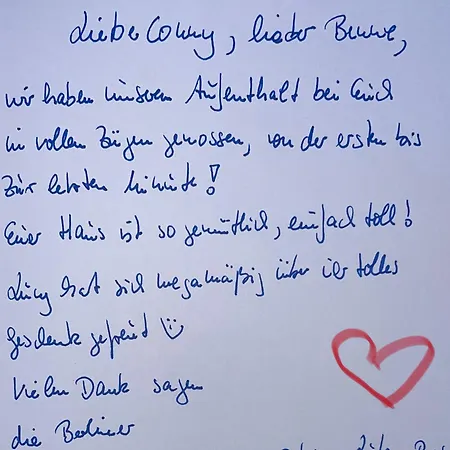 Liebe Conny, lieber Benne,
wir haben unseren Aufenthalt bei Euch
in vollen Zügen genossen, von der ersten bis
zur letzten Minute!
Euer Haus ist so gemütlich, einfach toll!
hat sich megamäßig über ihr tolles
Geschenk gefreut
Vielen Dank sagen
die Berliner